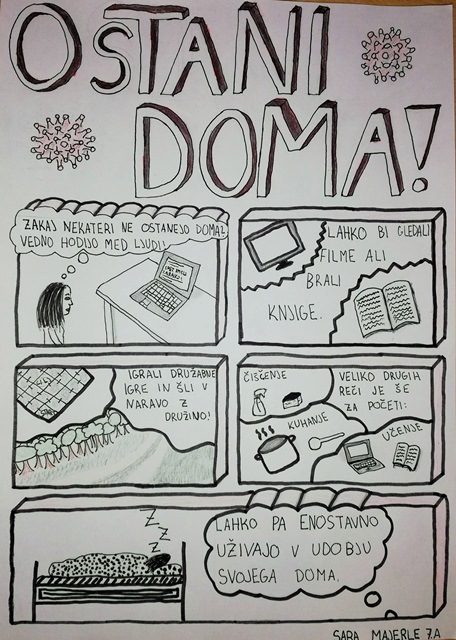 OSTANI
DOMA!
ZAKAJ NEKATERI NE OSTANEJO DOMA?
VEDNO HODIJO MED LJUDI!
LAHKO BI GLEDALI
FILME ALI
BRALI
KNJIGE.
IGRALI DRUŽABNE
IGRE IN ŠLI V
NARAVO Z
DRUŽINO!
START
ČIŠČENJE
VELIKO DRUGIH
REČI JE ŠE
ZA POČETI:
KUHANJE
UČENJE
Z
Z
Z
Z
LAHKO PA ENOSTAVNO
UŽIVAJO V UDOBJU
SVOJEGA DOMA.
SARA MAJERLE 7.A